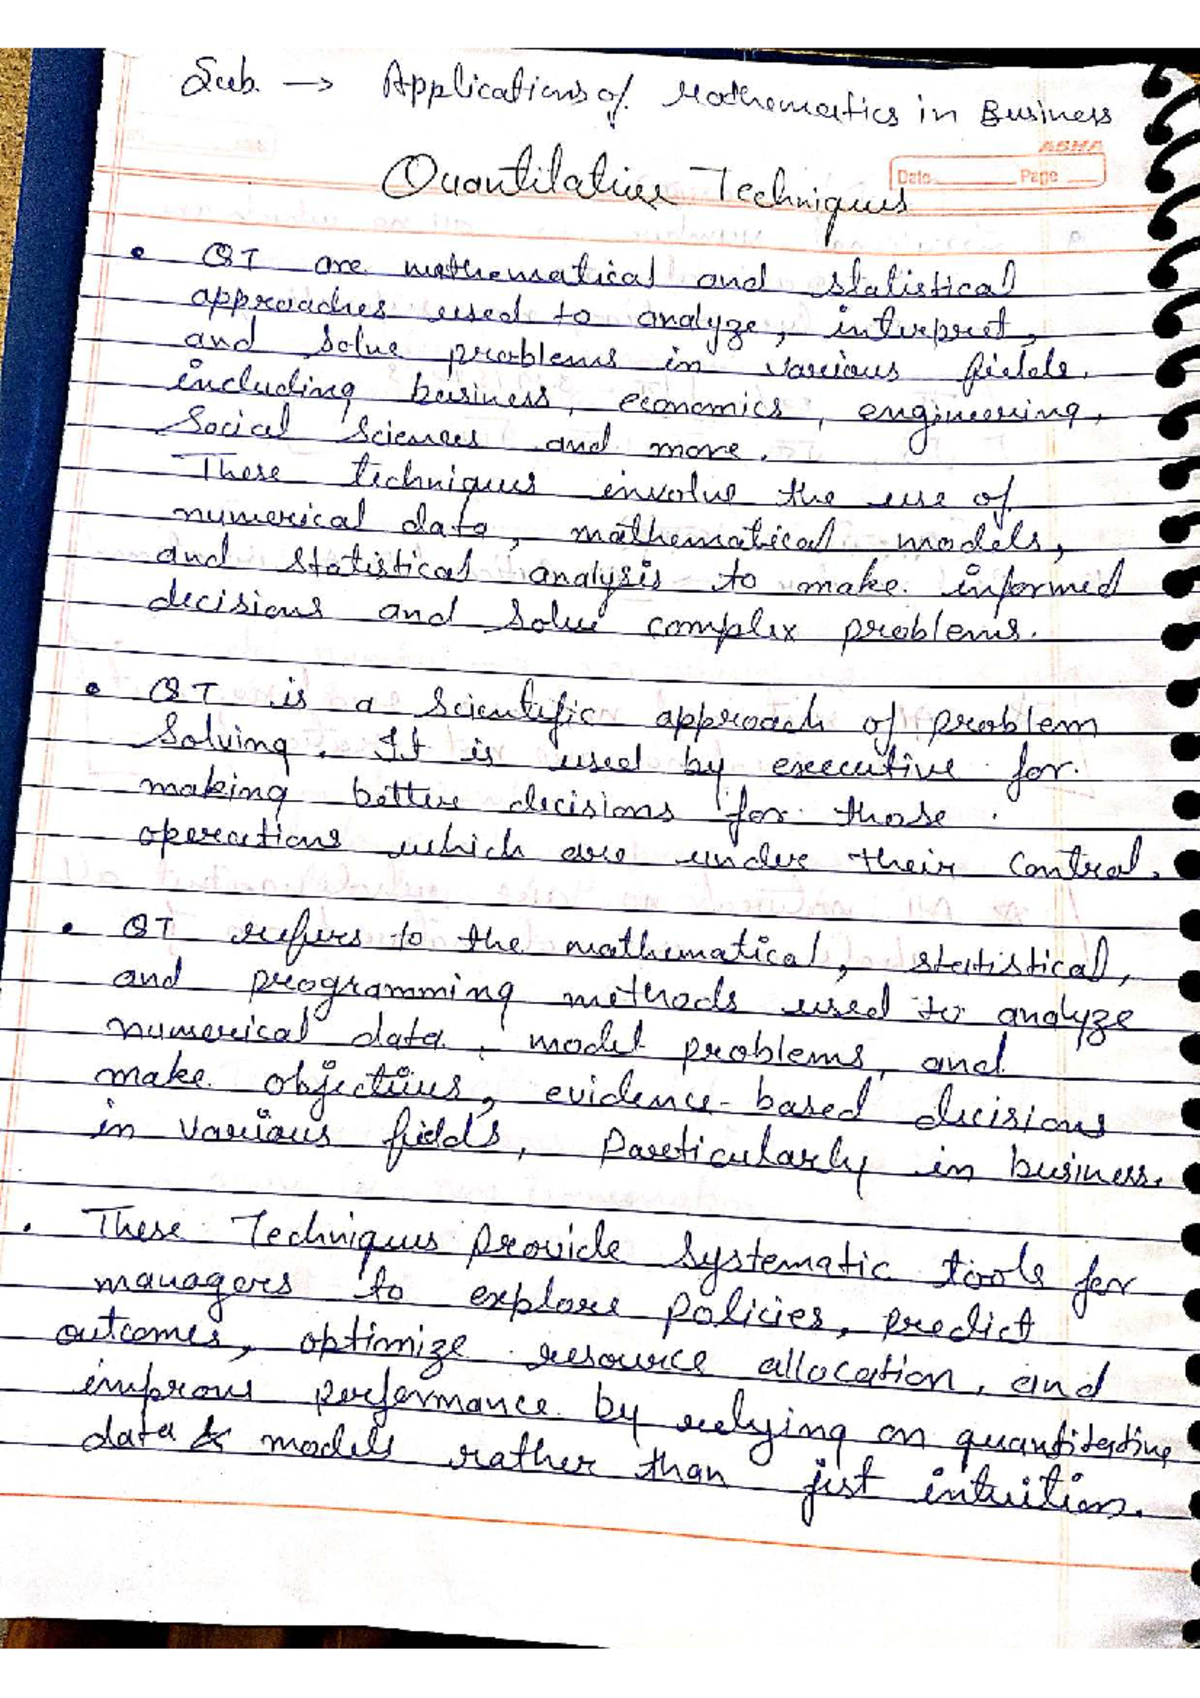 Sub. → Applications of Mathematics in Business
ASHA
Date Page
Quantitative Techniques
• QT are mathematical and statistical
approaches used to analyze, interpret,
and solve problems in various fields,
including business, economics, engineering,
Social Sciences and more.
These techniques involve the use of
numerical data, mathematical models,
and statistical analysis to make informed
decisions and solve complex problems.
• QT is a scientific approach of problem
Solving. It is used by executive for
making better decisions for those
operations which are under their control.
• QT refers to the mathematical, statistical,
and programming methods used to analyze
numerical data, model problems, and
make objectives, evidence-based decisions
in various fields, Particularly in business.
• These Techniques provide systematic tools for
managers to explore policies, predict
outcomes, optimize resource allocation, and
improve performance by relying on quantitative
data & models rather than jist intuition.